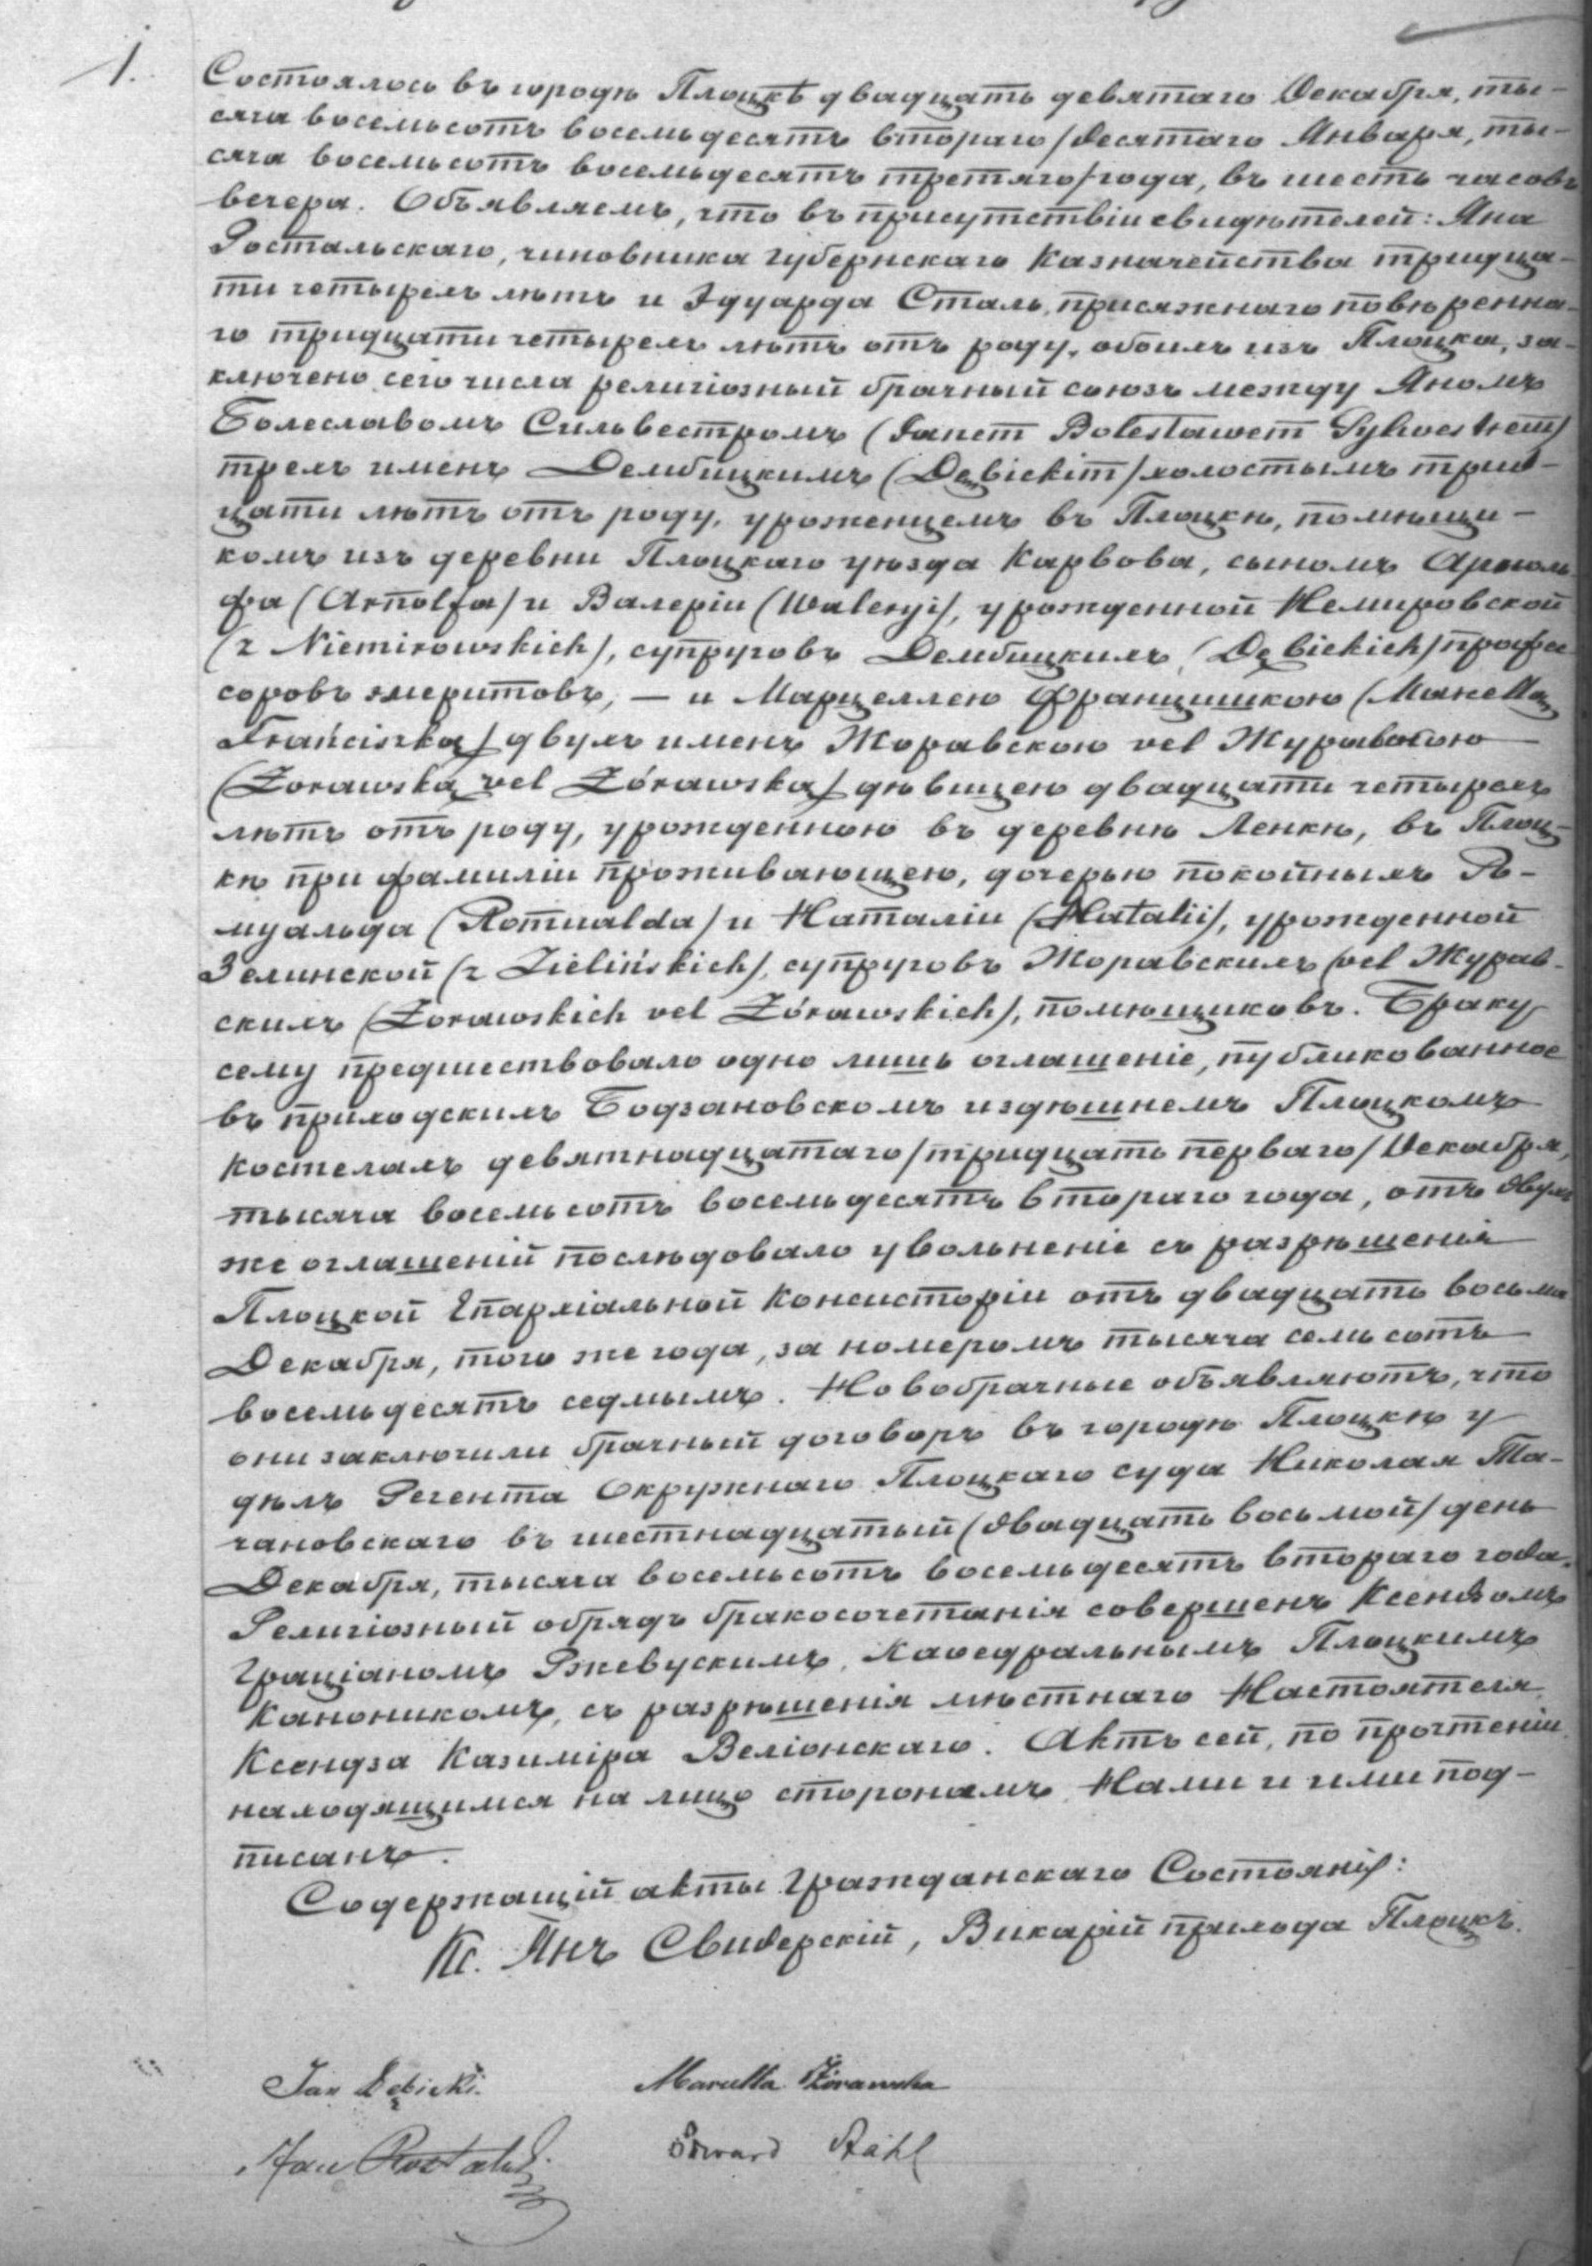 1.
Состоялось въ городѣ Плоцкѣ двадцать девятаго Декабря, ты-
сяча восемьсотъ восемьдесятъ втораго /десятаго Января, ты-
сяча восемьсотъ восемьдесятъ третяго/ года, въ шесть часовъ
вечера. Объявляемъ, что въ присутствіи свидѣтелей: Яна
Ростальскаго, чиновника Губернскаго Казначейства тридца-
ти четырехъ лѣтъ и Эдуарда Сталь, присяжнаго повѣренна-
го тридцати четырехъ лѣтъ отъ роду, обоихъ изъ Плоцка, за-
ключено сего числа религіозный брачный союзъ между Яномъ
Болеславомъ Сильвестромъ (Janem Bolesławem Sylwestrem)
трехъ именъ Дембицкимъ (Dębickim) холостымъ трид-
цати лѣтъ отъ роду, уроженцемъ въ Плоцкѣ, помѣщи-
комъ изъ деревни Плоцкаго уѣзда Карвова, сыномъ Арноль-
фа (Arnolfa) и Валеріи (Waleryi), урожденной Немировской
(z Niemirowskich), супруговъ Дембицкихъ (Dębickich) профе
соровъ эмеритовъ, — и Марцеллею Францишкою (Marcellą
Franciszką) двухъ именъ Жоравскою vel Журавскою
(Żorawską vel Żórawską) дѣвицею двадцати четырехъ
лѣтъ отъ роду, урожденною въ деревнѣ Ленкѣ, въ Плоц-
кѣ при фамиліи проживающею, дочерью покойныхъ Ро-
муальда (Romualda) и Наталіи (Natalii), урожденной
Зелинской (z Zielińskich), супруговъ Жоравскихъ (vel Журав-
скихъ (Żorawskich vel Żórawskich), помѣщиковъ. Браку
сему предшествовало одно лишь оглашеніе, публикованное
въ приходскихъ Бодзановскомъ и здѣшнемъ Плоцкомъ
костелахъ девятнадцатаго /тридцать перваго/ Декабря,
тысяча восемьсотъ восемьдесятъ втораго года, отъ двухъ
же оглашеній послѣдовало увольненіе съ разрѣшенія
Плоцкой Епархіальной Консисторіи отъ двадцать восьма
Декабря, того же года, за номеромъ тысяча семьсотъ
восемьдесятъ седмымъ. Новобрачные объявляютъ, что
они заключили брачный договоръ въ городѣ Плоцкѣ у
дѣлъ Регента Окружнаго Плоцкаго суда Николая Та-
чановскаго въ шестнадцатый (двадцать восьмой) день
Декабря, тысяча восемьсотъ восемьдесятъ втораго года.
Религіозный обрядъ бракосочетанія совершенъ Ксендзомъ
Граціаномъ Ржевускимъ, Каѳедральнымъ Плоцкимъ
Каноникомъ, съ разрѣшенія мѣстнаго Настоятеля
Ксендза Казиміра Веліонскаго. Актъ сей, по прочтеніи
находящимся на лицо сторонамъ Нами и ими под-
писанъ.
Содержащій акты Гражданскаго Состоянія:
Кс. Янъ Свидерскій, Викарій прихода Плоцкъ.
Jan Dębicki. Marcella Żórawska
Jan Rostalski. Edward Stahl